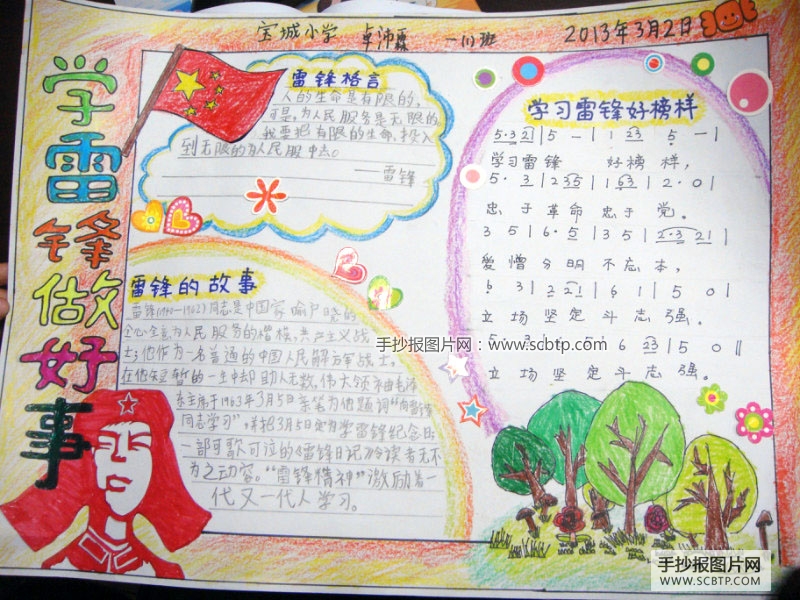 宝城小学 卓沛霖 一(1)班 2013年3月2日
学雷锋做好事
雷锋格言
人的生命是有限的,
可是,为人民服务是无限的
我要把有限的生命,投入
到无限的为人民服中去。
——雷锋
学习雷锋好榜样
5·3 2 1 | 5 — | 1 2 3 5 — |
学习雷锋 好榜样,
5· 3 | 2 3 5 | 1 6 3 | 2· 0 |
忠于革命忠于党。
3 5 | 6· 5 | 3 5 | 2·3 2 1 |
爱憎分明不忘本,
6 3 | 2 2 1 | 6 1 | 5 0 |
立场坚定斗志强。
5· 3 6 2 3 | 5 0 ‖
立场坚定斗志强。
雷锋的故事
雷锋(1940—1962)同志是中国家喻户晓的
全心全意为人民服务的楷模,共产主义战
士;他作为一名普通的中国人民解放军战士,
在他短暂的一生中却助人无数,伟大领袖毛泽
东主席于1963年3月5日亲笔为他题词"向雷锋
同志学习",并把3月5日定为学雷锋纪念日
一部可歌可泣的《雷锋日记》令读者无不
为之动容。"雷锋精神"激励着一
代又一代人学习。
手抄报图片网:www.scbtp.com
手抄报图片网
WWW.SCBTP.COM